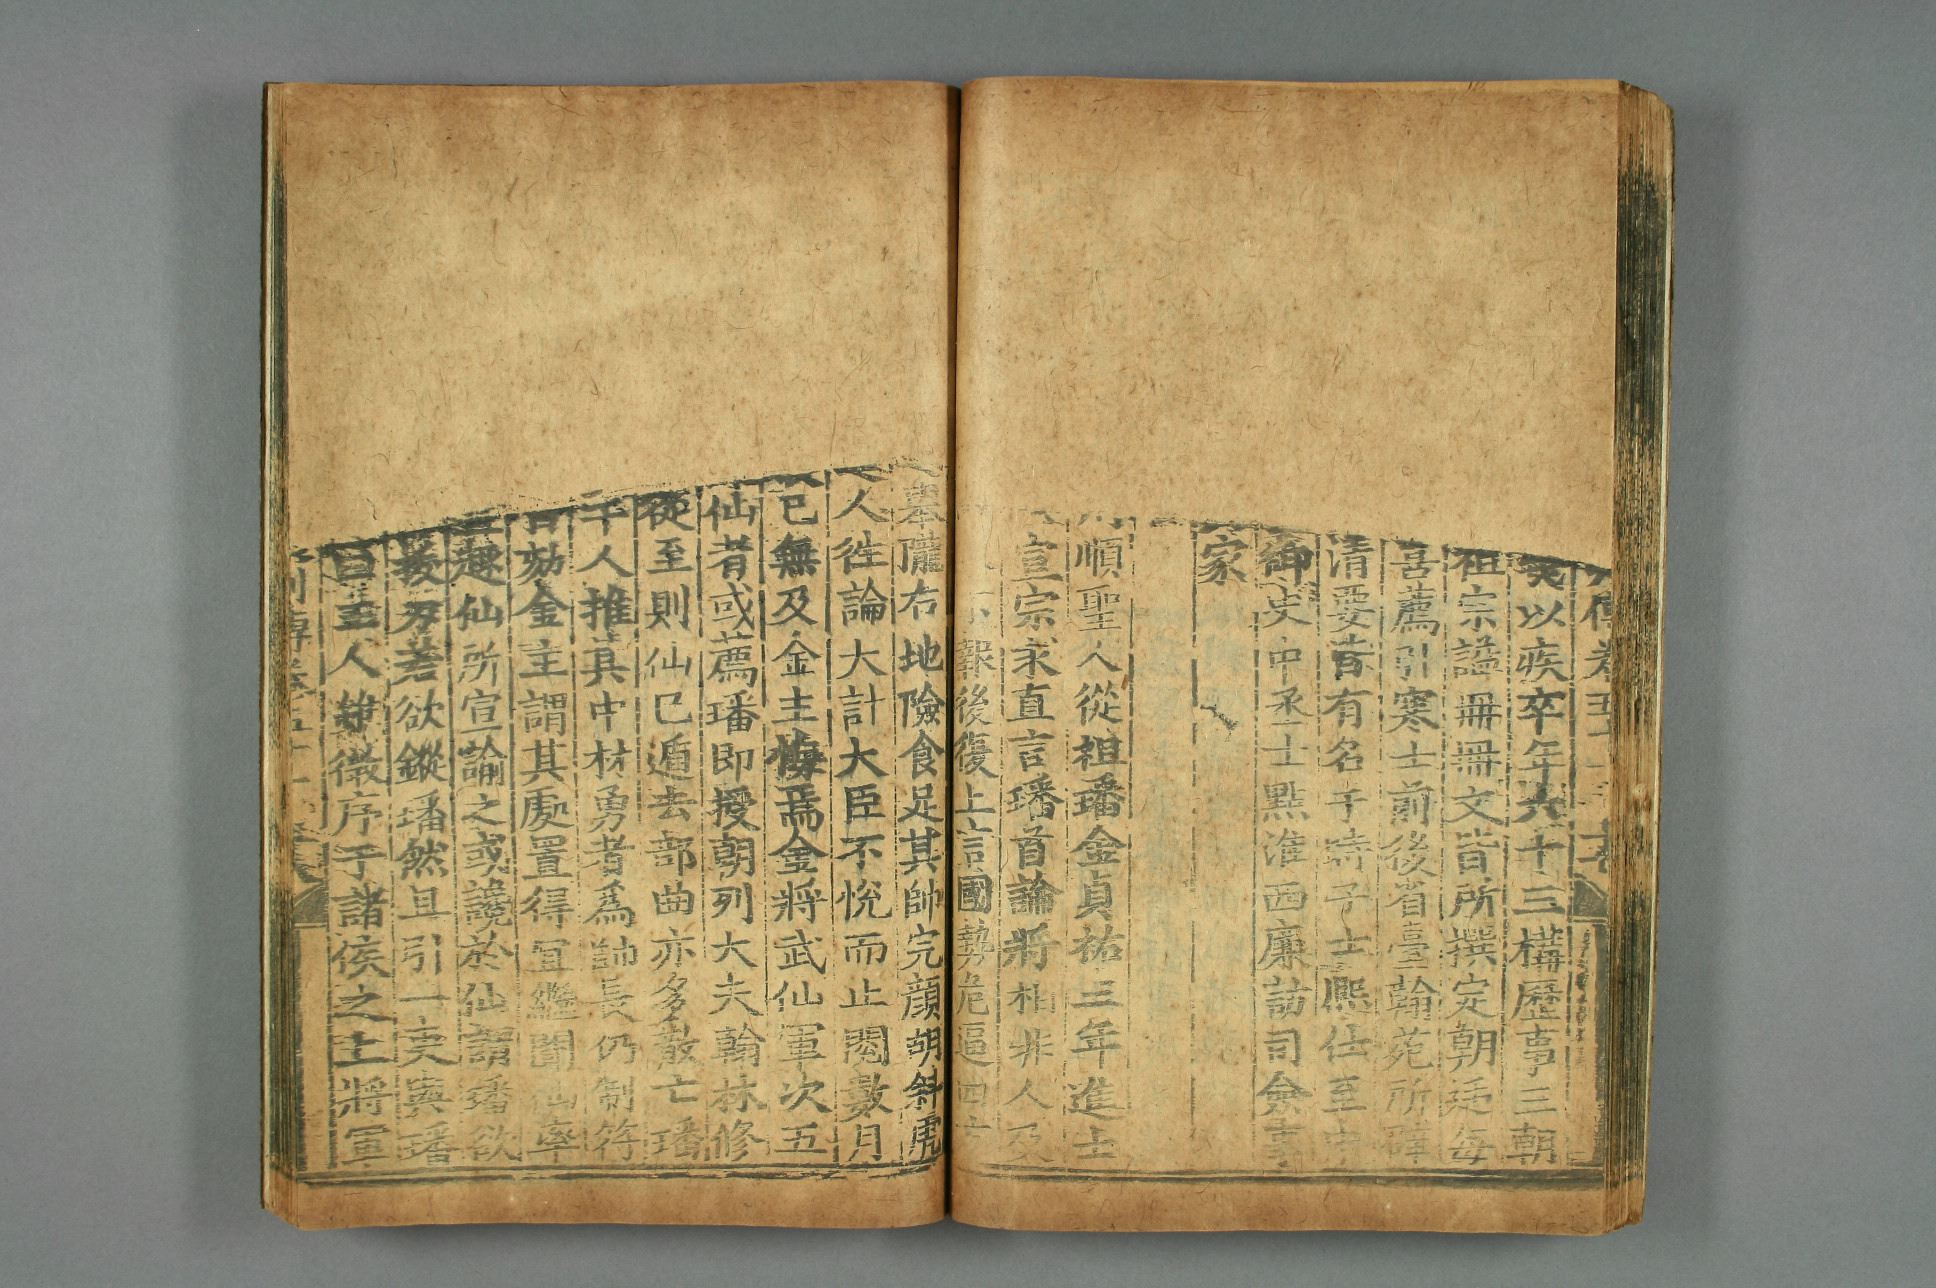 傳卷五十
以疾卒年六十三構歷事三朝
祖宗謚冊冊文皆所撰定朝廷每
喜薦引寒士前後省臺翰苑所辟
清要者有名于時子士熙仕至中
御史中丞士點淮西廉訪司僉事
家
順聖人從祖璠金貞祐三年進士
宣宗求直言璠首論將相非人及
報後復上言國勢危逼四方
奉隴右地險食足其帥完顔胡斜虎
人徃論大計大臣不悅而止閱數月
已無及金主悔焉金將武仙軍次五
仙者或薦璠即授朝列大夫翰林修
從至則仙已遁去部曲亦多散亡璠
千人推其中材勇者為帥長仍制符
劾金主謂其處置得宜繼聞仙率
趣仙所宣諭之或讒於仙謂璠欲
刃若欲鏦璠然且引一吏與璠
王人雖微序于諸侯之上將軍
列傳卷五十